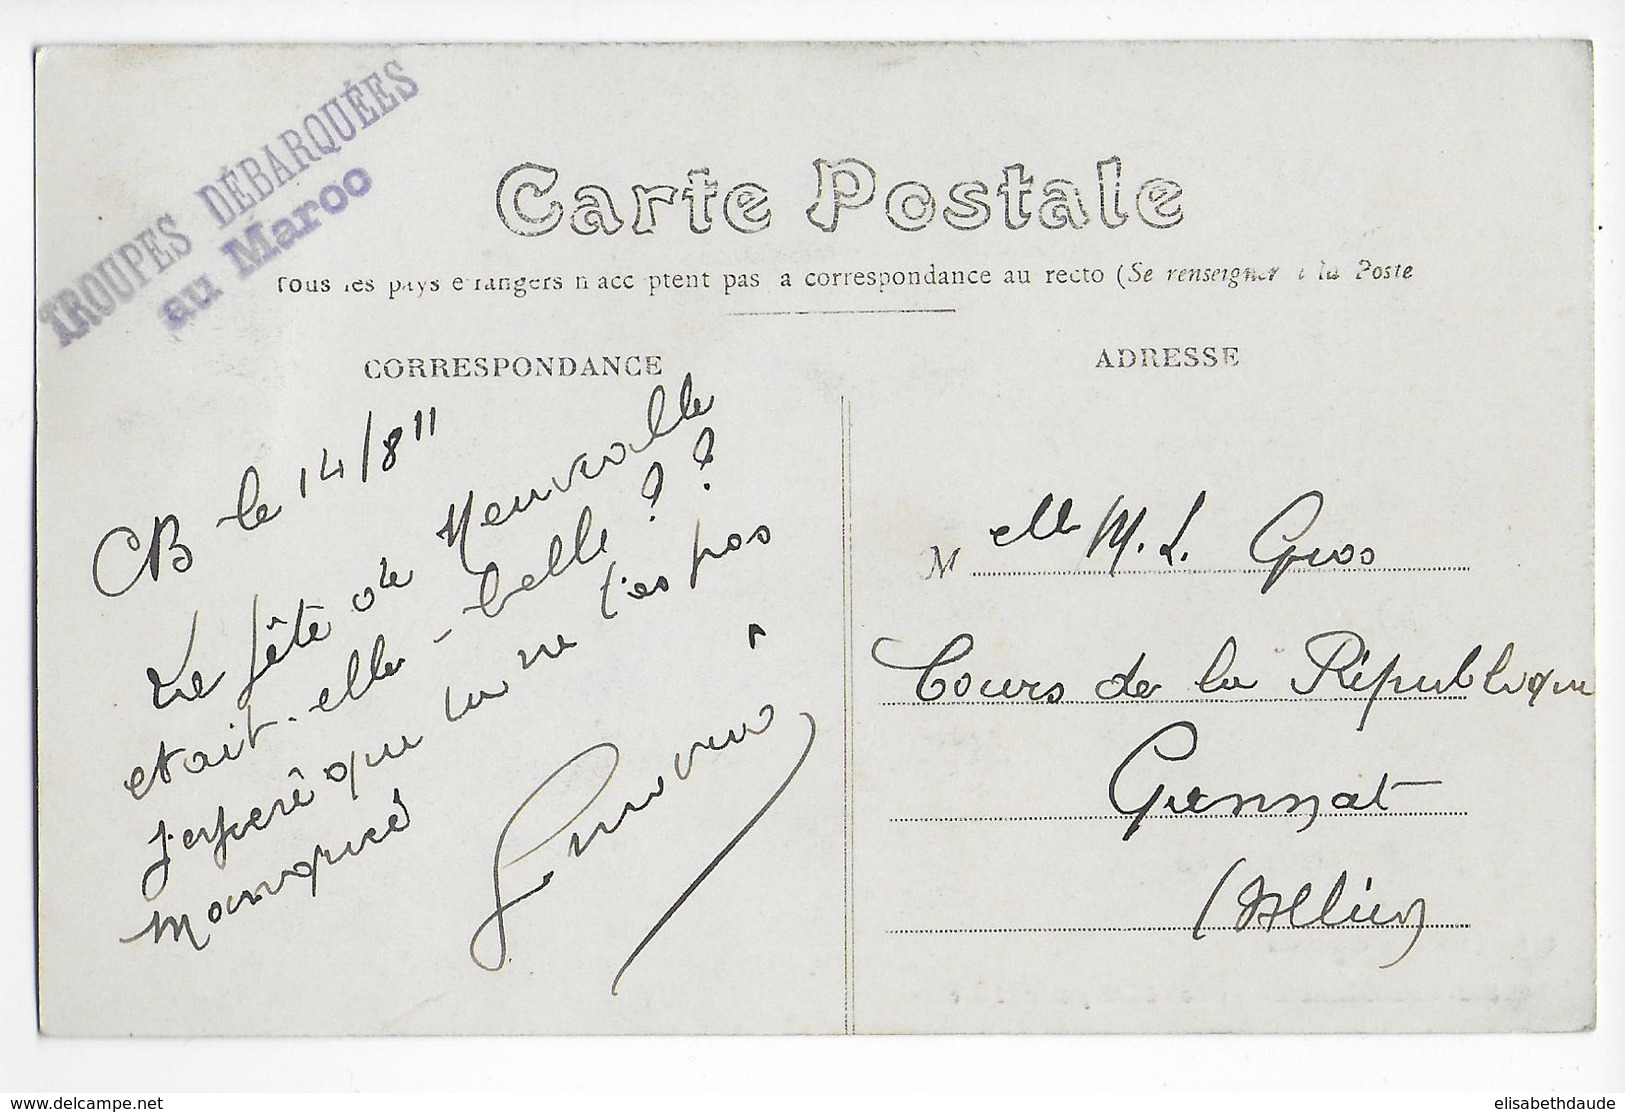 TROUPES DÉBARQUÉES
au Maroc
Carte Postale
Tous les pays étrangers n'acceptent pas la correspondance au recto (Se renseigner à la Poste
CORRESPONDANCE
ADRESSE
CB le 14/8 11
La fête de Neuvialle
etait-elle-belle? ? ?
j'espère que tu ne t'es pas
manqué
Melle M. L. Gros
Cours de la République
Gannat
(Allier)
elisabethdaude
www.delcampe.net